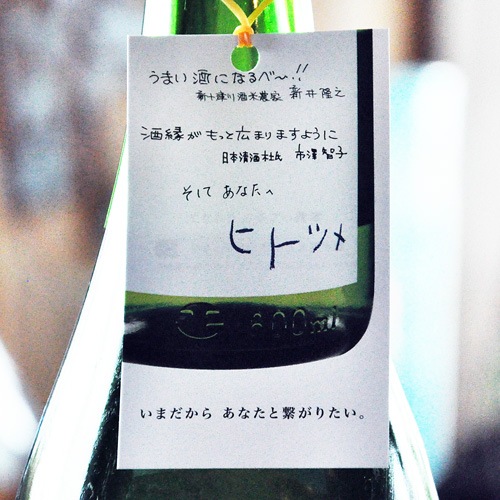 うまい酒になるべ〜!!
新十津川酒米農家 新井隆之
酒縁がもっと広まりますように
日本清酒杜氏 市澤智子
そして あなたへ
ヒトツメ
800ml
いまだから あなたと繋がりたい。